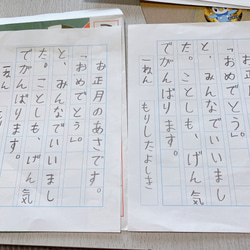 お正月のあさです。
「おめでとう」
と、みんなでいいまし
た。ことしも、げん気
でがんばります。
一ねん　もりしたよしき
お正月のあさです。
「おめでとう」
と、みんなでいいまし
た。ことしも、げん気
でがんばります。
一ねん